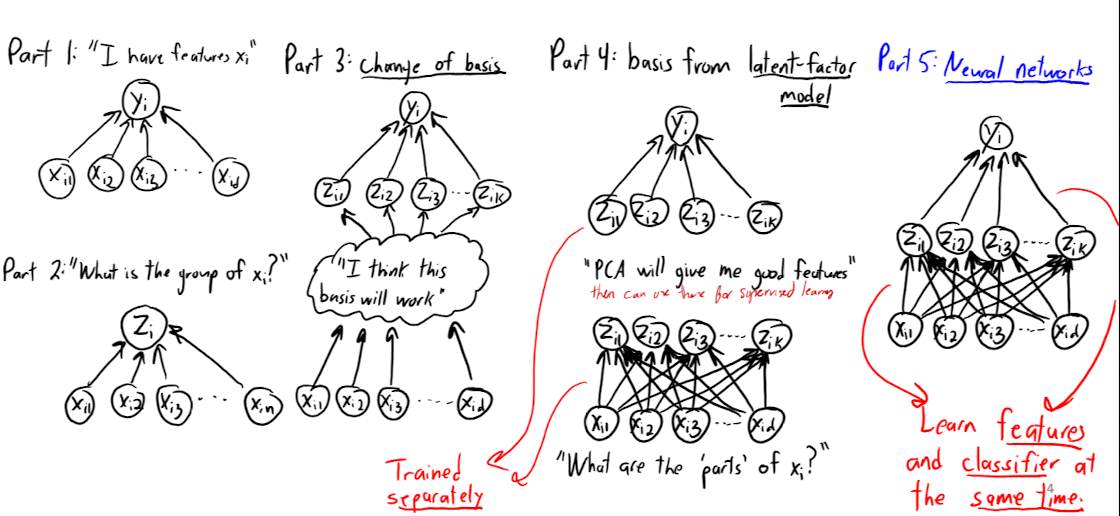 Part 1: "I have features xi"
yi
xi1 xi2 xi3 ... xid
Part 2: "What is the group of xi?"
zi
xi1 xi2 xi3 ... xin
Part 3: Change of basis
yi
zi1 zi2 zi3 ... zik
"I think this
basis will work"
xi1 xi2 xi3 ... xid
Part 4: basis from latent-factor
model
yi
zi1 zi2 zi3 ... zik
"PCA will give me good features"
then can use these for supervised learning
zi1 zi2 zi3 ... zik
xi1 xi2 xi3 ... xid
"What are the 'parts' of xi?"
Trained
separately
Part 5: Neural networks
yi
zi1 zi2 zi3 ... zik
xi1 xi2 xi3 ... xid
Learn features
and classifier at
the same time.
4